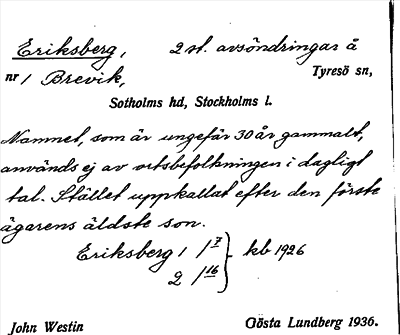 Eriksberg, 2 st. avsöndringar å
nr 1 Brevik, Tyresö sn,
Sotholms hd, Stockholms l.
Namnet, som är ungefär 30 år gammalt,
används ej av ortsbefolkningen i dagligt
tal. Stället uppkallat efter den förste
ägarens äldste son.
Eriksberg 1 /7 } kb 1926
2 /16
John Westin Gösta Lundberg 1936.